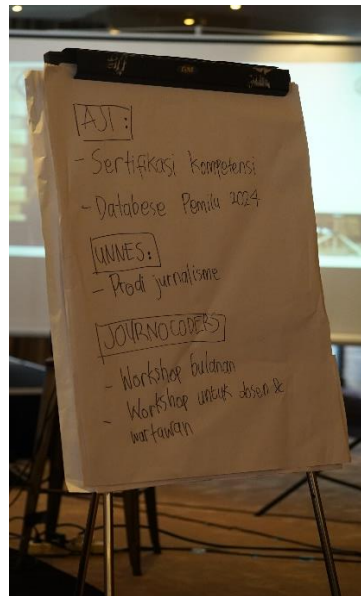 AJI :
- Sertifikasi Kompetensi
- Databese Pemilu 2024
UNNES:
- Prodi jurnalisme
JOURNOCODERS
- Workshop bulanan
- Workshop untuk dosen &
wartawan